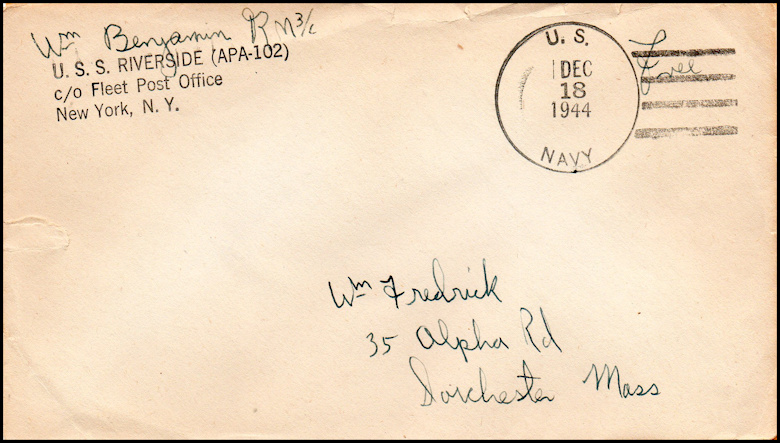 Wm Benjamin RM 3/c
U. S. S. RIVERSIDE (APA-102)
c/o Fleet Post Office
New York, N. Y.
U. S.
DEC
18
1944
NAVY
Free
Wm Fredrick
35 Alpha Rd
Dorchester Mass